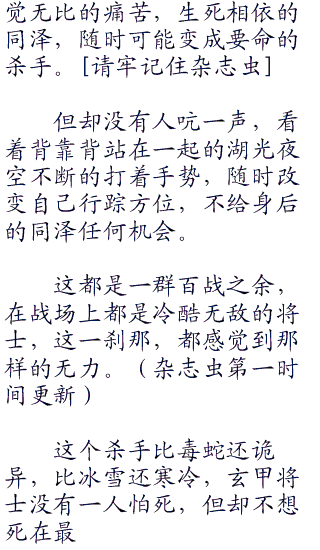 觉无比的痛苦，生死相依的
同泽，随时可能变成要命的
杀手。[请牢记住杂志虫]
但却没有人吭一声，看
着背靠背站在一起的湖光夜
空不断的打着手势，随时改
变自己行踪方位，不给身后
的同泽任何机会。
这都是一群百战之余，
在战场上都是冷酷无敌的将
士，这一刹那，都感觉到那
样的无力。（杂志虫第一时
间更新）
这个杀手比毒蛇还诡
异，比冰雪还寒冷，玄甲将
士没有一人怕死，但却不想
死在最